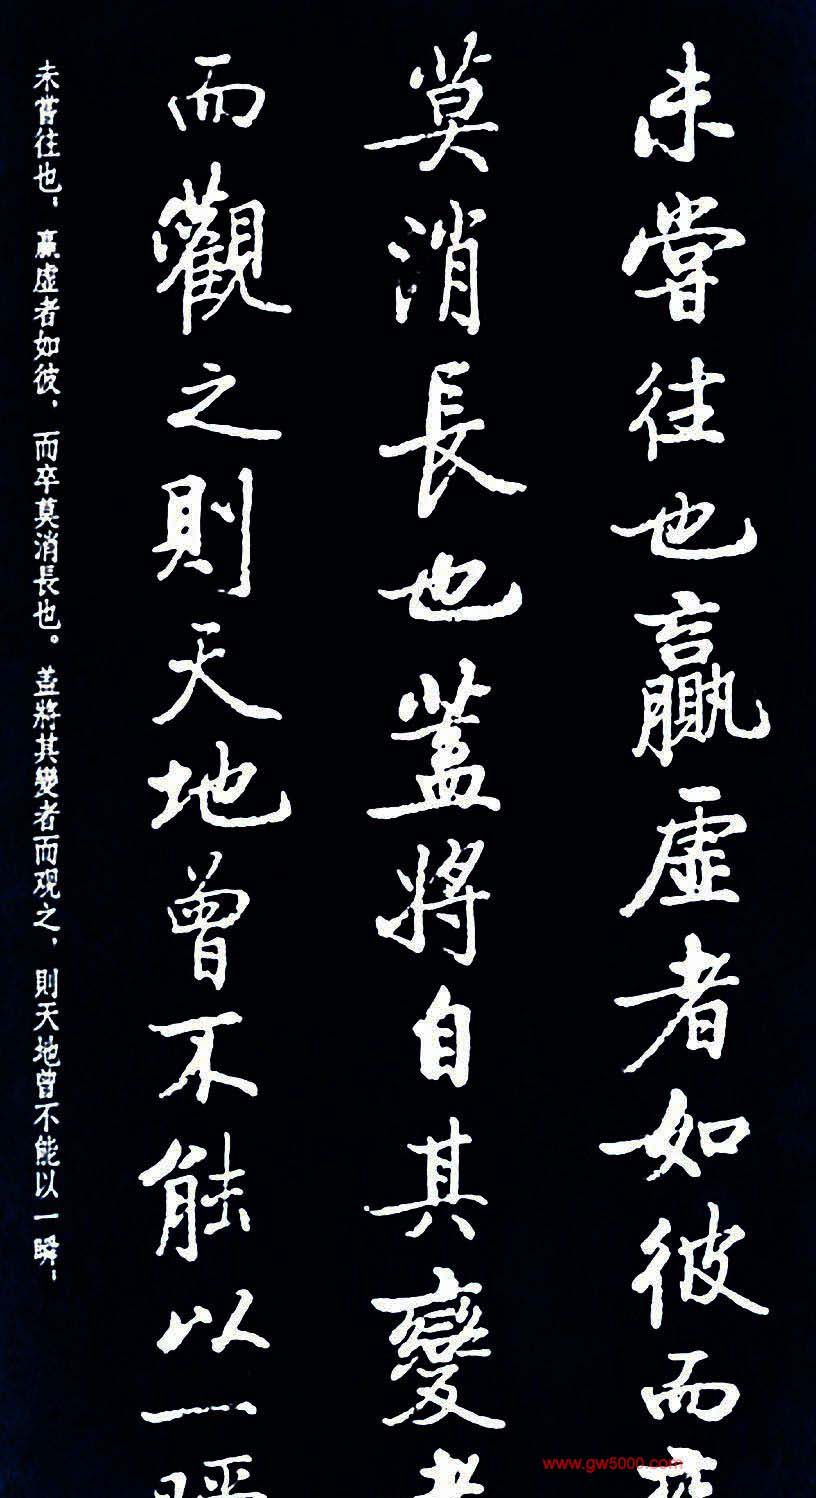 未嘗往也贏虛者如彼而卒
莫消長也蓋將自其變者
而觀之則天地曾不能以一瞬
未嘗往也，贏虛者如彼，而卒莫消長也。蓋將其變者而观之，則天地曾不能以一瞬，
www.gw5000.com